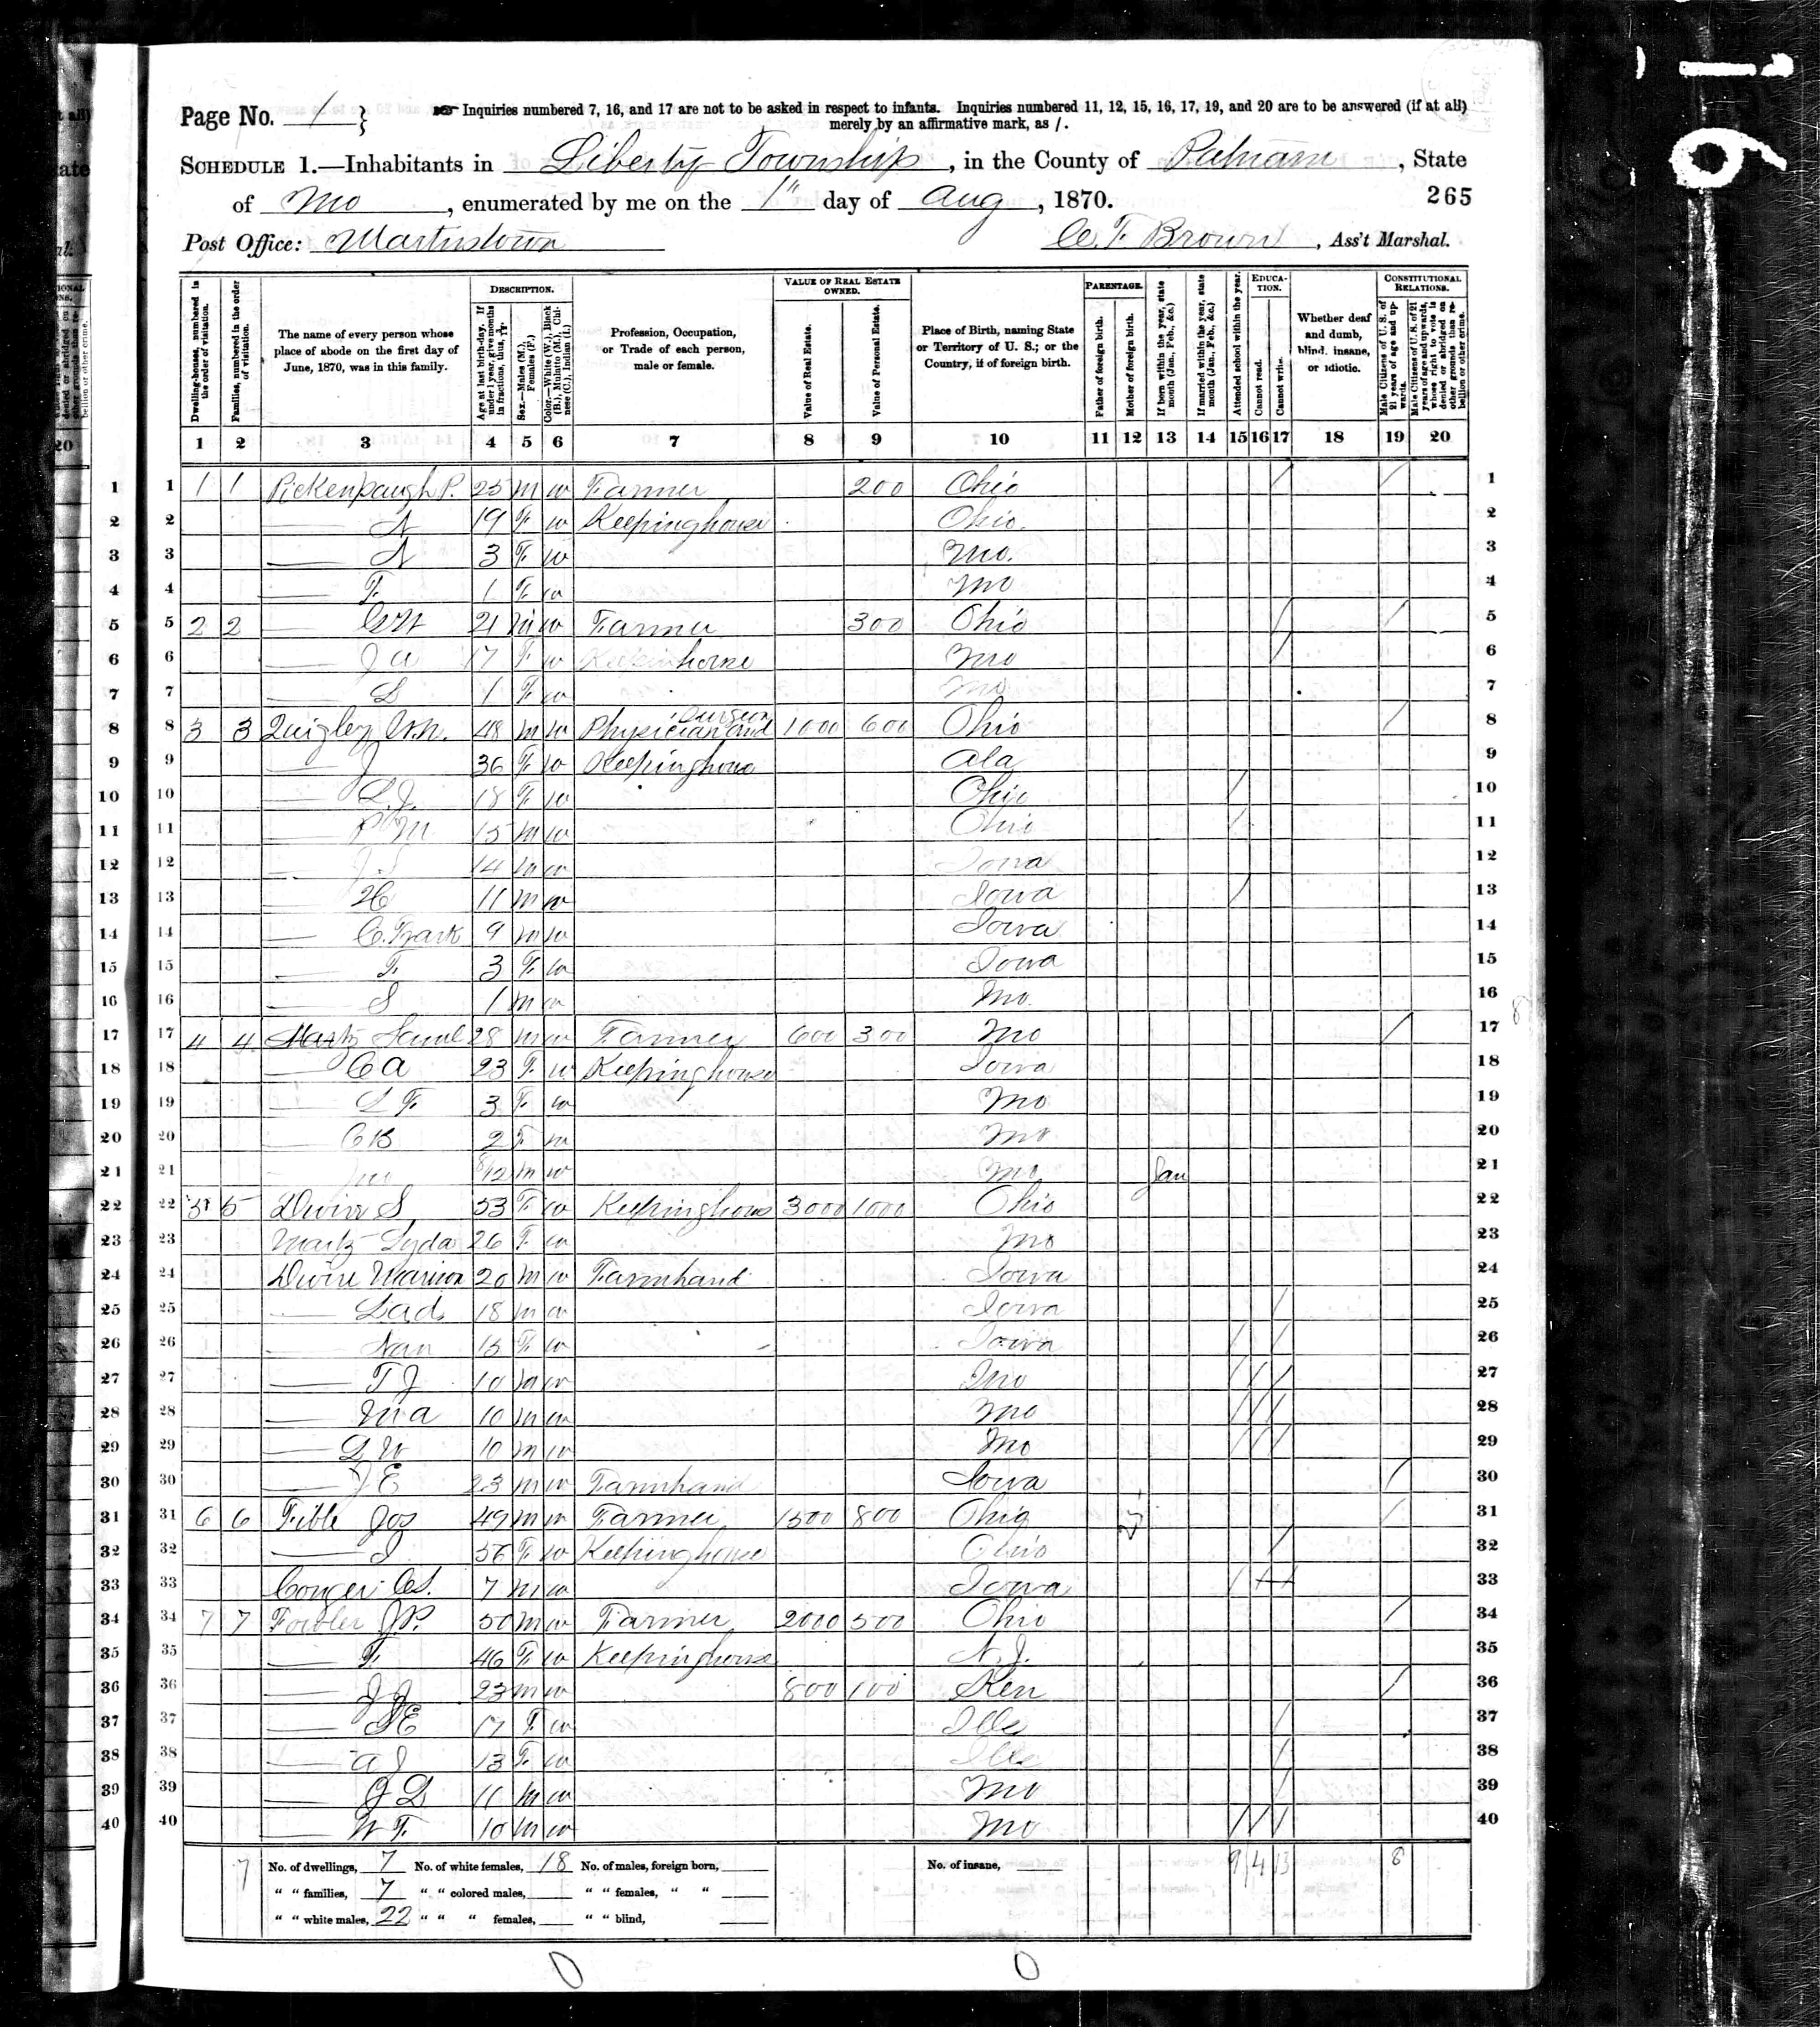 Page No. 1 } Inquiries numbered 7, 16, and 17 are not to be asked in respect to infants. Inquiries numbered 11, 12, 15, 16, 17, 19, and 20 are to be answered (if at all)
merely by an affirmative mark, as /.
SCHEDULE 1.—Inhabitants in Liberty Township, in the County of Putnam, State
of Mo, enumerated by me on the 1" day of Aug, 1870. 265
Post Office: Martinstown C. F. Brown, Ass't Marshal.
Dwelling-houses, numbered in the order of visitation.
Families, numbered in the order of visitation.
The name of every person whose place of abode on the first day of June, 1870, was in this family.
DESCRIPTION.
Age at last birth-day. If under 1 year, give months in fractions, thus, 3/12
Sex.—Males (M.), Females (F.)
Color.—White (W.), Black (B.), Mulatto (M.), Chinese (C.), Indian (I.)
Profession, Occupation, or Trade of each person, male or female.
VALUE OF REAL ESTATE OWNED.
Value of Real Estate.
Value of Personal Estate.
Place of Birth, naming State or Territory of U. S.; or the Country, if of foreign birth.
PARENTAGE.
Father of foreign birth.
Mother of foreign birth.
If born within the year, state month (Jan., Feb., &c.)
If married within the year, state month (Jan., Feb., &c.)
Attended school within the year.
EDUCATION.
Cannot read.
Cannot write.
Whether deaf and dumb, blind, insane, or idiotic.
CONSTITUTIONAL RELATIONS.
Male Citizens of U. S. of 21 years of age and upwards.
Male Citizens of U. S. of 21 years of age and upwards, whose right to vote is denied or abridged on other grounds than rebellion or other crime.
1 2 3 4 5 6 7 8 9 10 11 12 13 14 15 16 17 18 19 20
1 1 1 Pickenpaugh P. 25 m w Farmer 200 Ohio / / 1
2 — N 19 F w Keepinghouse Ohio. 2
3 — N 3 F w Mo. 3
4 — F. 1 F w Mo 4
5 2 2 — GW 21 m w Farmer 300 Ohio / / 5
6 — J A 17 F w Keepinhouse Mo / 6
7 — L 1 F w Mo 7
8 3 3 Quigley Wm. 48 m w Physician and Surgeon 1000 600 Ohio / 8
9 — J 36 F w Keepinghouse Ala 9
10 — L. J. 18 F w Ohio / 10
11 — P M 15 m w Ohio / 11
12 — J. S 14 m w Iowa 12
13 — H 11 m w Iowa / 13
14 — C. Frank 9 m w Iowa 14
15 — F. 3 F. w Iowa 15
16 — S 1 m w Mo. 16
17 4 4 Martz Saml 28 m w Farmer 600 300 Mo / 17
18 — C A 23 F. w Keepinghouse Iowa 18
19 — L F. 3 F. w Mo 19
20 — C B 2 F w Mo 20
21 m w Mo Jan 21
22 5 5 Divin S 53 F. w Keepinghouse 3000 1000 Ohio 22
23 Martz Lyda 26 F. w Mo 23
24 Divin Marion 20 m w Farmhand Iowa 24
25 — Lad 18 m w Iowa / 25
26 — Nan 15 F. w Iowa / / 26
27 — T J 10 m w Mo / / / 27
28 — M A 10 m w Mo / / / 28
29 — L W 10 m w Mo / / / 29
30 — J E 23 m w Farmhand Iowa / 30
31 6 6 Fible Jos 49 m w Farmer 1500 800 Ohio / 31
32 — J 56 F. w Keepinghouse Ohio / 32
33 Conger 7 m w Iowa / / / 33
34 7 7 Fowler J. P. 50 m w Farmer 2000 500 Ohio / 34
35 — F. 46 F. w Keepinghouse N. J. 35
36 — J J 23 m w 800 100 Ken / 36
37 — S E 17 F. w Ills / 37
38 — A J 13 F. w Ills / 38
39 — J L 11 m w Mo / 39
40 — W F. 10 m w Mo / / / 40
7 No. of dwellings, 7 No. of white females, 18 No. of males, foreign born, No. of insane, 9 4 13 8
" " families, 7 " " colored males, " " females, " "
" " white males, 22 " " " females, " " blind,